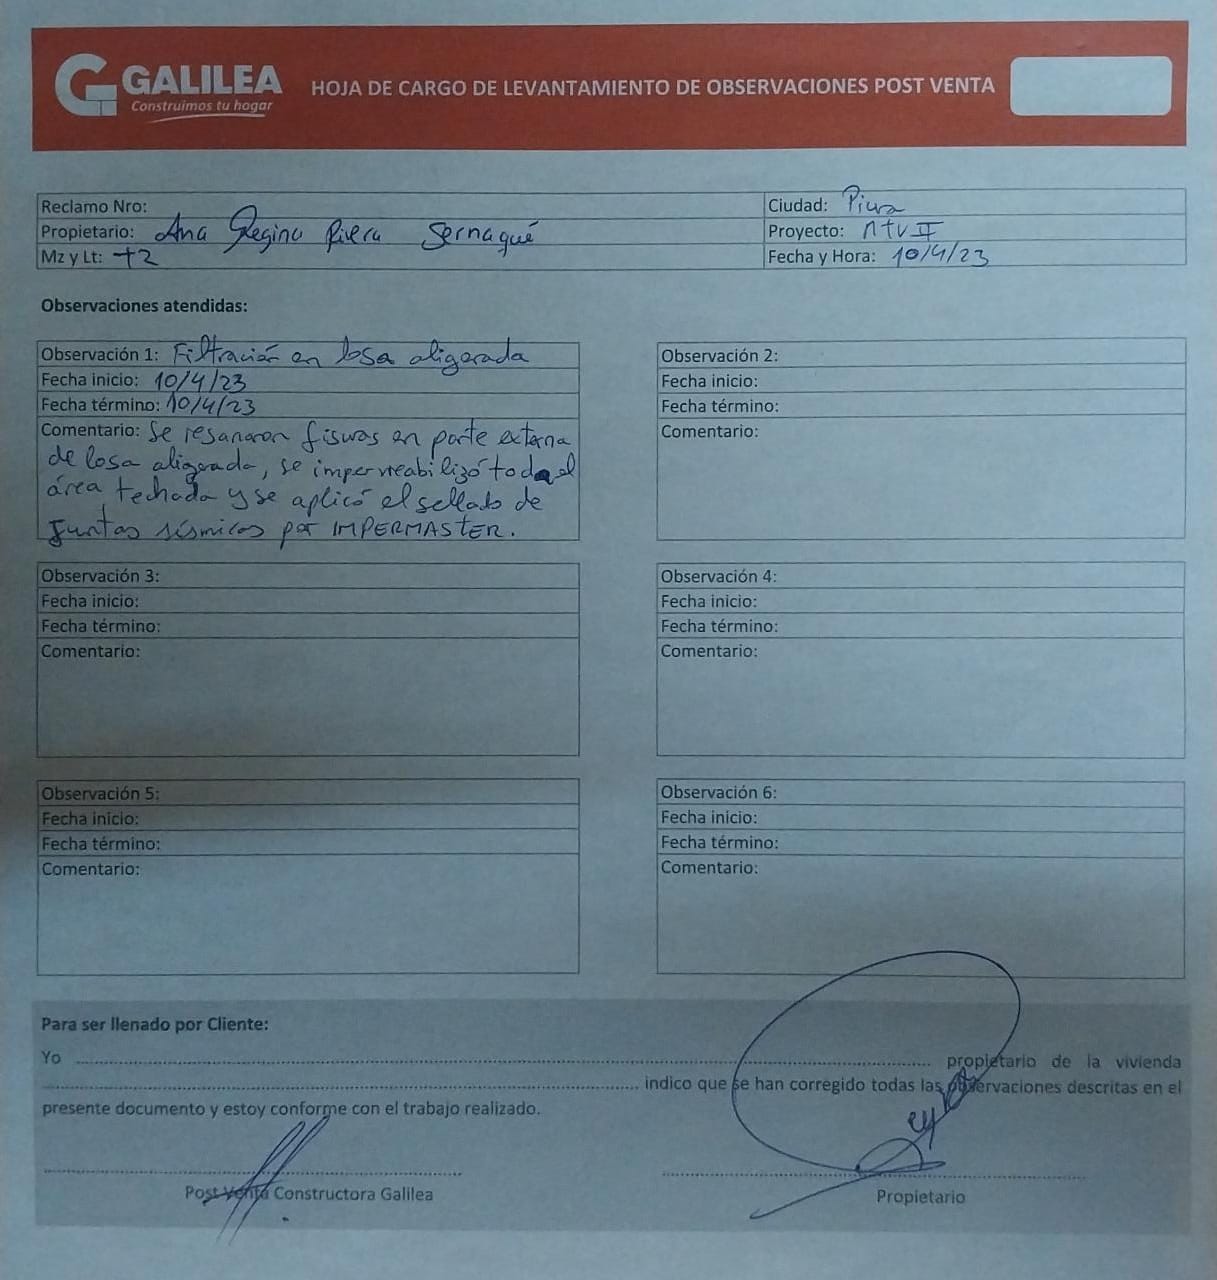 GALILEA
Construimos tu hogar
HOJA DE CARGO DE LEVANTAMIENTO DE OBSERVACIONES POST VENTA
Reclamo Nro:
Ciudad: Piura
Propietario: Ana Regina Rivera Sernaqué
Proyecto: ntv II
Mz y Lt: t2
Fecha y Hora: 10/4/23
Observaciones atendidas:
Observación 1: Filtración en losa aligerada
Fecha inicio: 10/4/23
Fecha término: 10/4/23
Comentario: Se resanaron fisuras en parte externa
de losa aligerada, se impermeabilizó todo el
área techada y se aplicó el sellado de
juntas sísmicas por IMPERMASTER.
Observación 2:
Fecha inicio:
Fecha término:
Comentario:
Observación 3:
Fecha inicio:
Fecha término:
Comentario:
Observación 4:
Fecha inicio:
Fecha término:
Comentario:
Observación 5:
Fecha inicio:
Fecha término:
Comentario:
Observación 6:
Fecha inicio:
Fecha término:
Comentario:
Para ser llenado por Cliente:
Yo ........ propietario de la vivienda
........ indico que se han corregido todas las observaciones descritas en el
presente documento y estoy conforme con el trabajo realizado.
Post Venta Constructora Galilea
Propietario